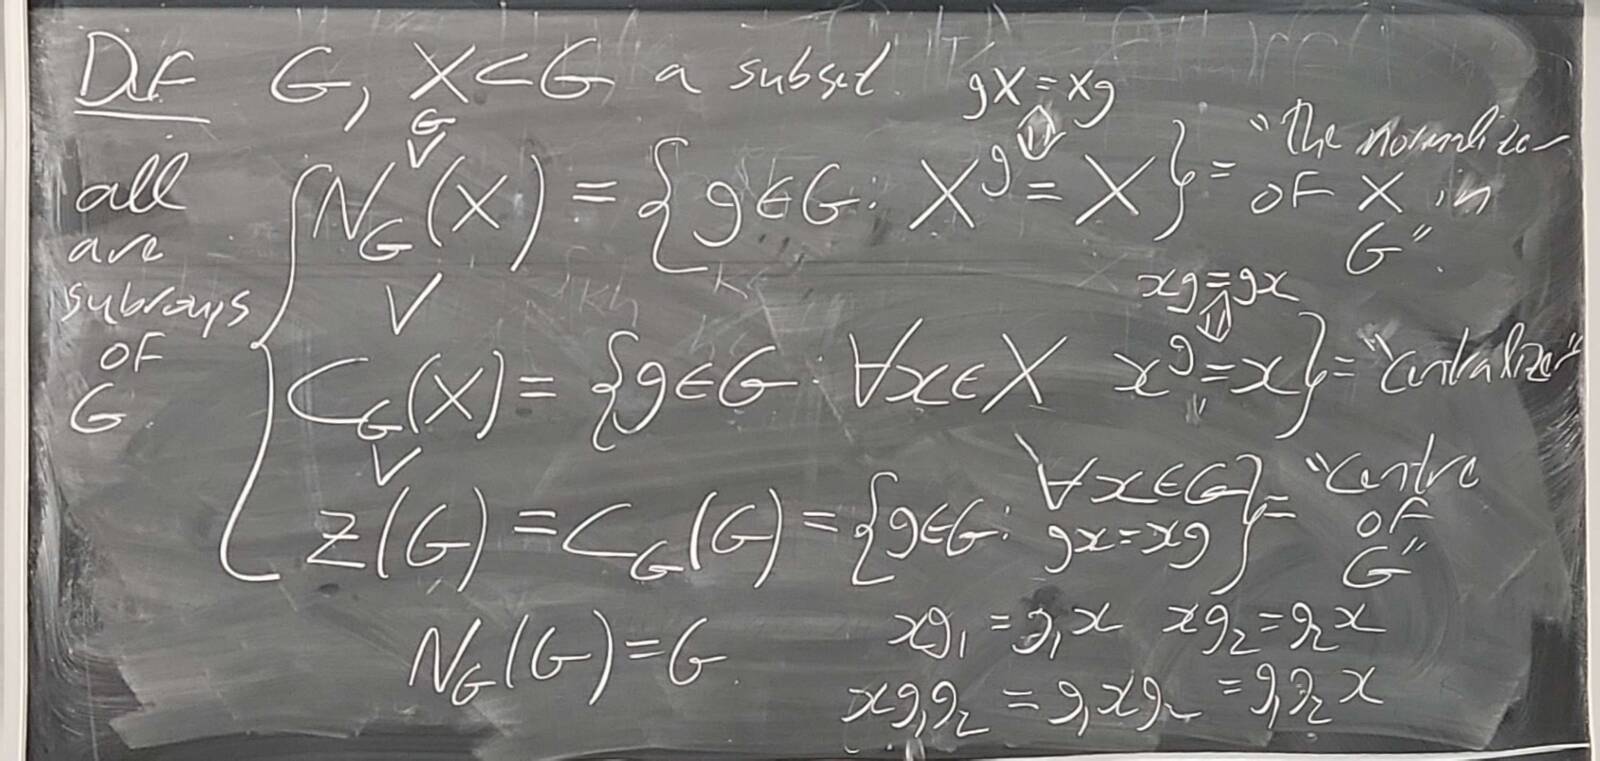 Def G, X⊂G a subset. gX=Xg
G
∨
all are subroups of G
N_G(X) = {g∈G: X^g = X} = "the normalizer of X in G".
⇕
∨
xg=gx
⇕
C_G(X) = {g∈G: ∀x∈X x^g=x} = "centralizer"
∨
Z(G) = C_G(G) = {g∈G: ∀x∈G gx=xg} = "centre of G"
N_G(G)=G.
xg₁ = g₁x xg₂=g₂x
xg₁g₂ = g₁xg₂ = g₁g₂x